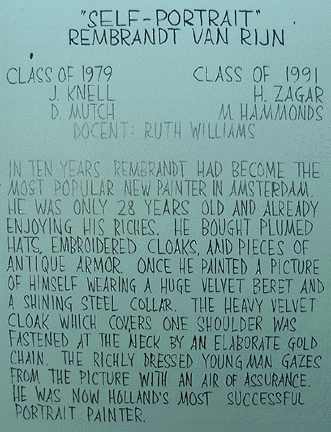 "SELF-PORTRAIT"
REMBRANDT VAN RIJN
CLASS OF 1979 CLASS OF 1991
J. KNELL H. ZAGAR
D. MUTCH M. HAMMONDS
DOCENT: RUTH WILLIAMS
IN TEN YEARS REMBRANDT HAD BECOME THE
MOST POPULAR NEW PAINTER IN AMSTERDAM.
HE WAS ONLY 28 YEARS OLD AND ALREADY
ENJOYING HIS RICHES. HE BOUGHT PLUMED
HATS, EMBROIDERED CLOAKS, AND PIECES OF
ANTIQUE ARMOR. ONCE HE PAINTED A PICTURE
OF HIMSELF WEARING A HUGE VELVET BERET AND
A SHINING STEEL COLLAR. THE HEAVY VELVET
CLOAK WHICH COVERS ONE SHOULDER WAS
FASTENED AT THE NECK BY AN ELABORATE GOLD
CHAIN. THE RICHLY DRESSED YOUNG MAN GAZES
FROM THE PICTURE WITH AN AIR OF ASSURANCE.
HE WAS NOW HOLLAND'S MOST SUCCESSFUL
PORTRAIT PAINTER.